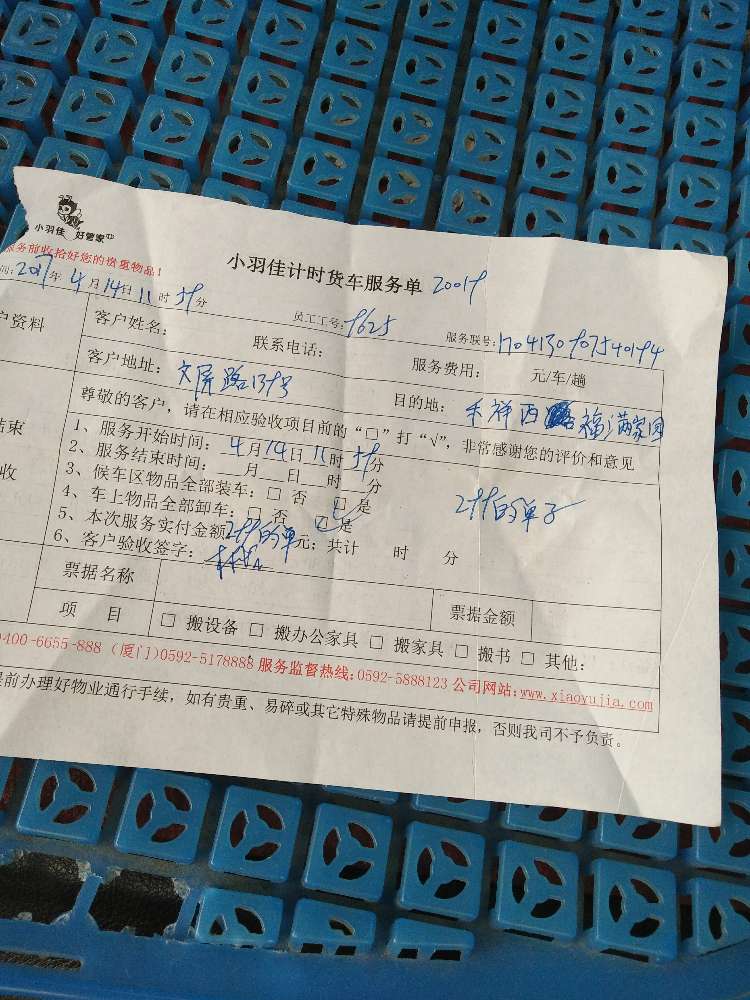 小羽佳 好管家
服务前收拾好您的贵重物品！
小羽佳计时货车服务单 20019
间：2017年4月14日11时59分
员工工号：9625
服务联号：1704130907540194
户资料
客户姓名：
联系电话：
服务费用： 元/车/趟
客户地址：文屏路139号
目的地：禾祥西 福满家园
尊敬的客户，请在相应验收项目前的“□”打“√”，非常感谢您的评价和意见
结束
收
1、服务开始时间：4月14日11时59分
2、服务结束时间： 月 日 时 分
3、候车区物品全部装车：□ 否 □ 是
4、车上物品全部卸车：□ 否 □ 是
299的单子
5、本次服务实付金额299的单元；共计 时 分
6、客户验收签字：
票据名称
票据金额
项 目
□ 搬设备 □ 搬办公家具 □ 搬家具 □ 搬书 □ 其他：
400-6655-888（厦门）0592-5178888 服务监督热线：0592-5888123 公司网站：www.xiaoyujia.com
提前办理好物业通行手续，如有贵重、易碎或其它特殊物品请提前申报，否则我司不予负责。